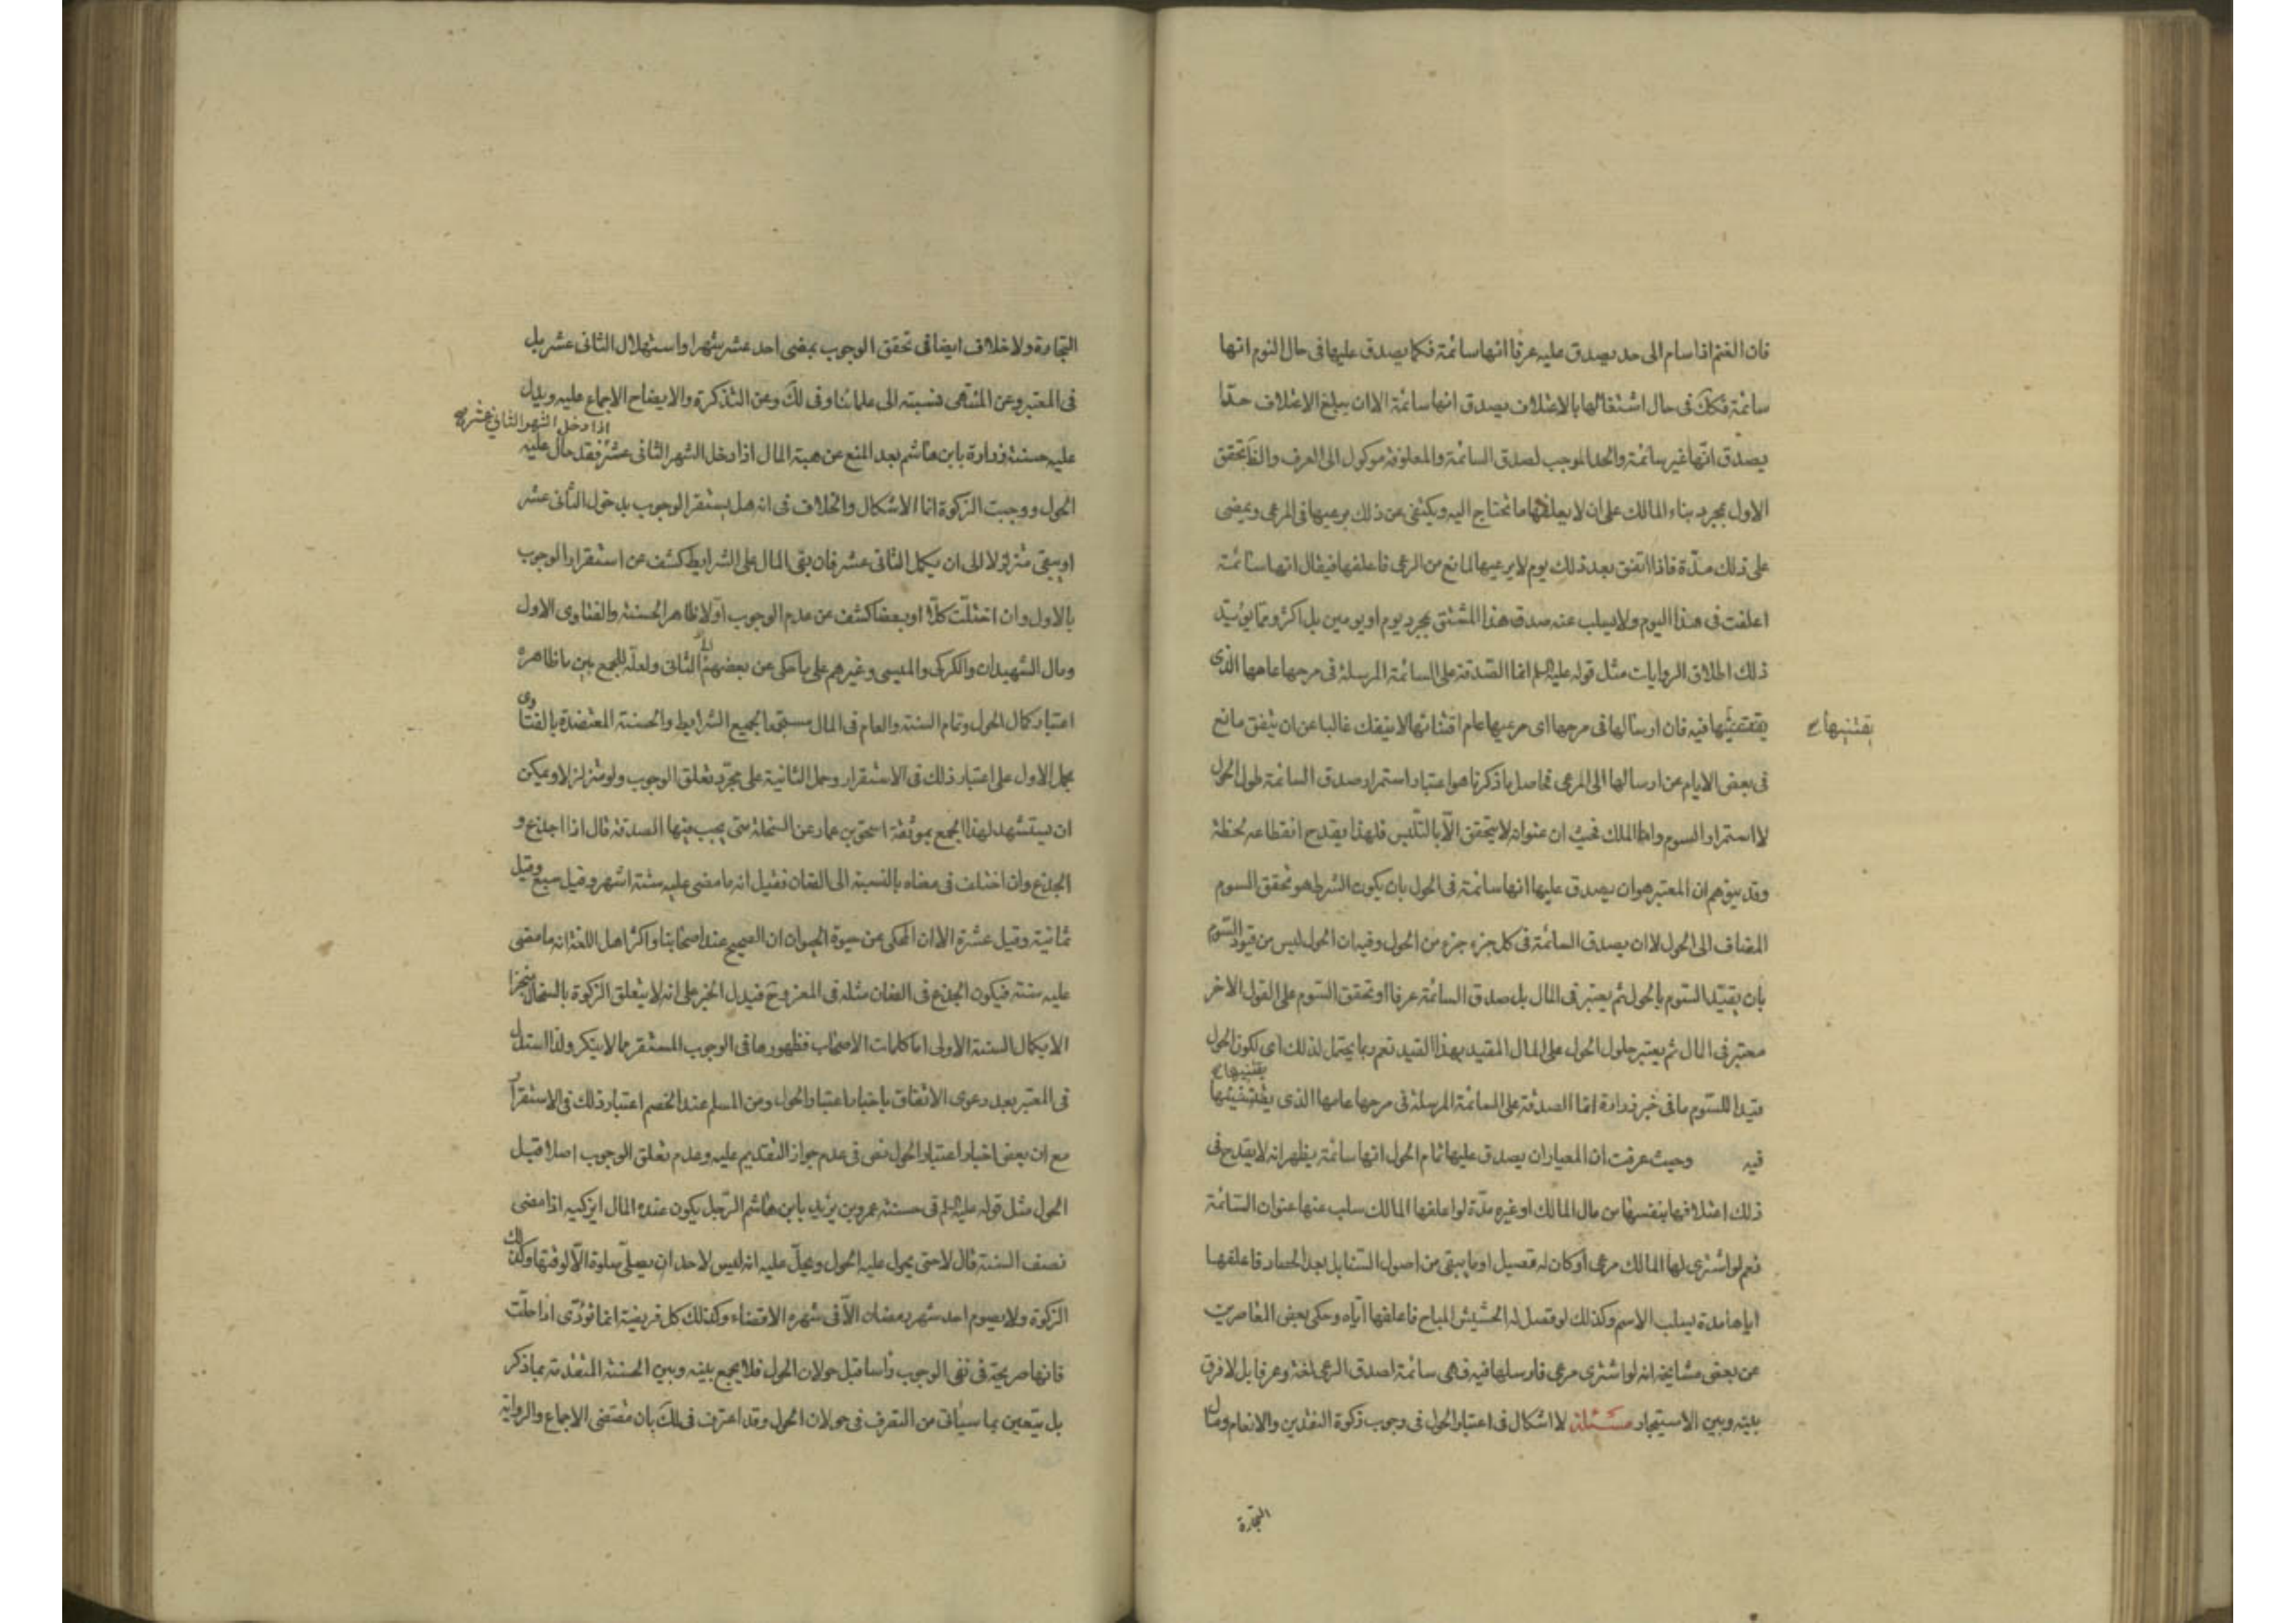 فان الغنم اذا سام الى حد يصدق عليه عرفا انها سائمة فكما يصدق عليها فى حال النوم انها
سائمة فكك فى حال اشتغالها بالاعتلاف يصدق انها سائمة الا ان يبلغ الاعتلاف حدا
يصدق انها غير سائمة والحد الموجب لصدق السائمة والمعلوفة موكول الى العرف والظ تحقق
الاول بمجرد بناء المالك على ان لا يعلفها ما تحتاج اليه ويكتفى عن ذلك برعيها فى المرعى ويمضى
على ذلك مدّة فاذا اتفق بعد ذلك يوم لا يرعيها لمانع من الرعى فاعلفها فيقال انها سائمة
اعلفت فى هذا اليوم ولا يسلب عنه صدق هذا المشتق بمجرد يوم او يومين بل اكثر ومما يؤيّد
ذلك اطلاق الروايات مثل قوله عليه السلم انما الصدقة على السائمة المرسلة فى مرجها عامها الذى
يقتنيها فيه فان ارسالها فى مرجها اى مرعيها عام اقتنائها لا ينفك غالبا عن ان يتفق مانع
يقتنيها ح
فى بعض الايام عن ارسالها الى المرعى فحاصل ما ذكرنا هو اعتبار استمرار صدق السائمة طول الحول
لا استمرار السوم واما الملك فحيث ان عنوانه لا يتحقق الّا بالتلبس فلهذا يقدح انقطاعه لحظة
وقد يتوهم ان المعتبر هو ان يصدق عليها انها سائمة فى الحول بان يكون الشرط هو تحقق السوم
المضاف الى الحول لا ان يصدق السائمة فى كل جزء جزء من الحول وفيه ان الحول ليس من قيود السّوم
بان يقيّد السّوم بالحول ثم يعتبر فى المال بل صدق السائمة عرفا او تحقق السّوم على القول الاخر
معتبر فى المال ثم يعتبر حلول الحول على المال المقيد بهذا القيد نعم ربما يحتمل لذلك اى لكون الحول
يقتنيها ح
قيدا للسّوم ما فى خبر زرارة انما الصدقة على السائمة المرسلة فى مرجها عامها الذى يقتنيها
فيه وحيث عرفت ان المعيار ان يصدق عليها تمام الحول انها سائمة يظهر انه لا يقدح فى
ذلك اعتلافها بنفسها من مال المالك او غيره مدّة لو اعلفها المالك سلب عنها عنوان السّائمة
نعم لو اشترى لها المالك مرعى او كان له قصيل او ما يبقى من اصول السّنابل بعد الحصاد فاعلفها
اياها مدة يسلب الاسم وكذلك لو قصل له الحشيش المباح فاعلفها ايّاه وحكى بعض المعاصرين
عن بعض مشايخه انه لو اشترى مرعى فارسلها فيه فهى سائمة لصدق الرعى لغة وعرفا بل لا فرق
بينه وبين الاستيجار مسئلة لا اشكال فى اعتبار الحول فى وجوب زكوة النقدين والانعام ومال
التجارة
التجارة ولا خلاف ايضا فى تحقق الوجوب بمضى احد عشر شهرا واستهلال الثانى عشر بل
فى المعتبر وعن المنتهى نسبته الى علمائنا وفى لك وعن التذكرة والايضاح الاجماع عليه ويدل
اذا دخل الشهر الثانى عشر ح
عليه حسنة زرارة بابن هاشم بعد المنع عن هبة المال اذا دخل الشهر الثانى عشر فقد حال عليه
الحول ووجبت الزكوة انما الاشكال والخلاف فى انه هل يستقر الوجوب بدخول الثانى عشر
او يبقى متزلزلا الى ان يكمل الثانى عشر فان بقى المال على الشرايط كشف عن استقرار الوجوب
بالاول وان اختلّت كلّا او بعضا كشف عن عدم الوجوب اوّلا ظاهر الحسنة والفتاوى الاول
ومال الشهيدان والكركى والميسى وغيرهم على ما حكى عن بعضهم الى الثانى ولعلّه للجمع بين ما ظاهره
اعتبار كمال الحول وتمام السنة والعام فى المال مستجمعا لجميع الشرايط والحسنة المعتضدة بالفتاوى
بحمل الاول على اعتبار ذلك فى الاستقرار وحمل الثانية على مجرّد تعلق الوجوب ولو متزلزلا ويمكن
ان يستشهد لهذا الجمع بموثقة اسحق بن عمار عن السخلة متى يجب فيها الصدقة قال اذا اجذع و
الجذع وان اختلف فى معناه بالنسبة الى الضان فقيل انه ما مضى عليه ستة اشهر وقيل سبع وقيل
ثمانية وقيل عشرة الا ان المحكى عن حيوة الحيوان ان الصحيح عند اصحابنا واكثر اهل اللغة انه ما مضى
عليه سنة فيكون الجذع فى الضان مثله فى المعز وح فيدل الخبر على انه لا يتعلق الزكوة بالسخال منجزا
الا بكمال السنة الاولى اما كلمات الاصحاب فظهورها فى الوجوب المستقر مما لا ينكر ولذا استدل
فى المعتبر بعد دعوى الاتفاق باخبار اعتبار الحول ومن المسلم عند الخصم اعتبار ذلك فى الاستقرار
مع ان بعض اخبار اعتبار الحول نص فى عدم جواز التقديم عليه وعدم تعلق الوجوب اصلا قبل
الحول مثل قوله عليه السلم فى حسنة عمر بن يزيد بابن هاشم الرّجل يكون عنده المال ايزكيه اذا مضى
نصف السنة قال لا حتى يحول عليه الحول ويحلّ عليه انه ليس لاحد ان يصلّى صلوة الّا لوقتها وكذلك
الزكوة ولا يصوم احد شهر رمضان الّا فى شهره الا قضاء وكذلك كل فريضة انما تؤدّى اذا حلّت
فانها صريحة فى نفى الوجوب راسا قبل حولان الحول فلا يجمع بينه وبين الحسنة المتقدمة بما ذكر
بل يتعين بما سياتى من التصرف فى حولان الحول وقد اعترف فى لك بان مقتضى الاجماع والرواية